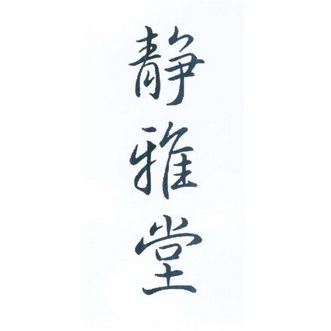 静雅堂